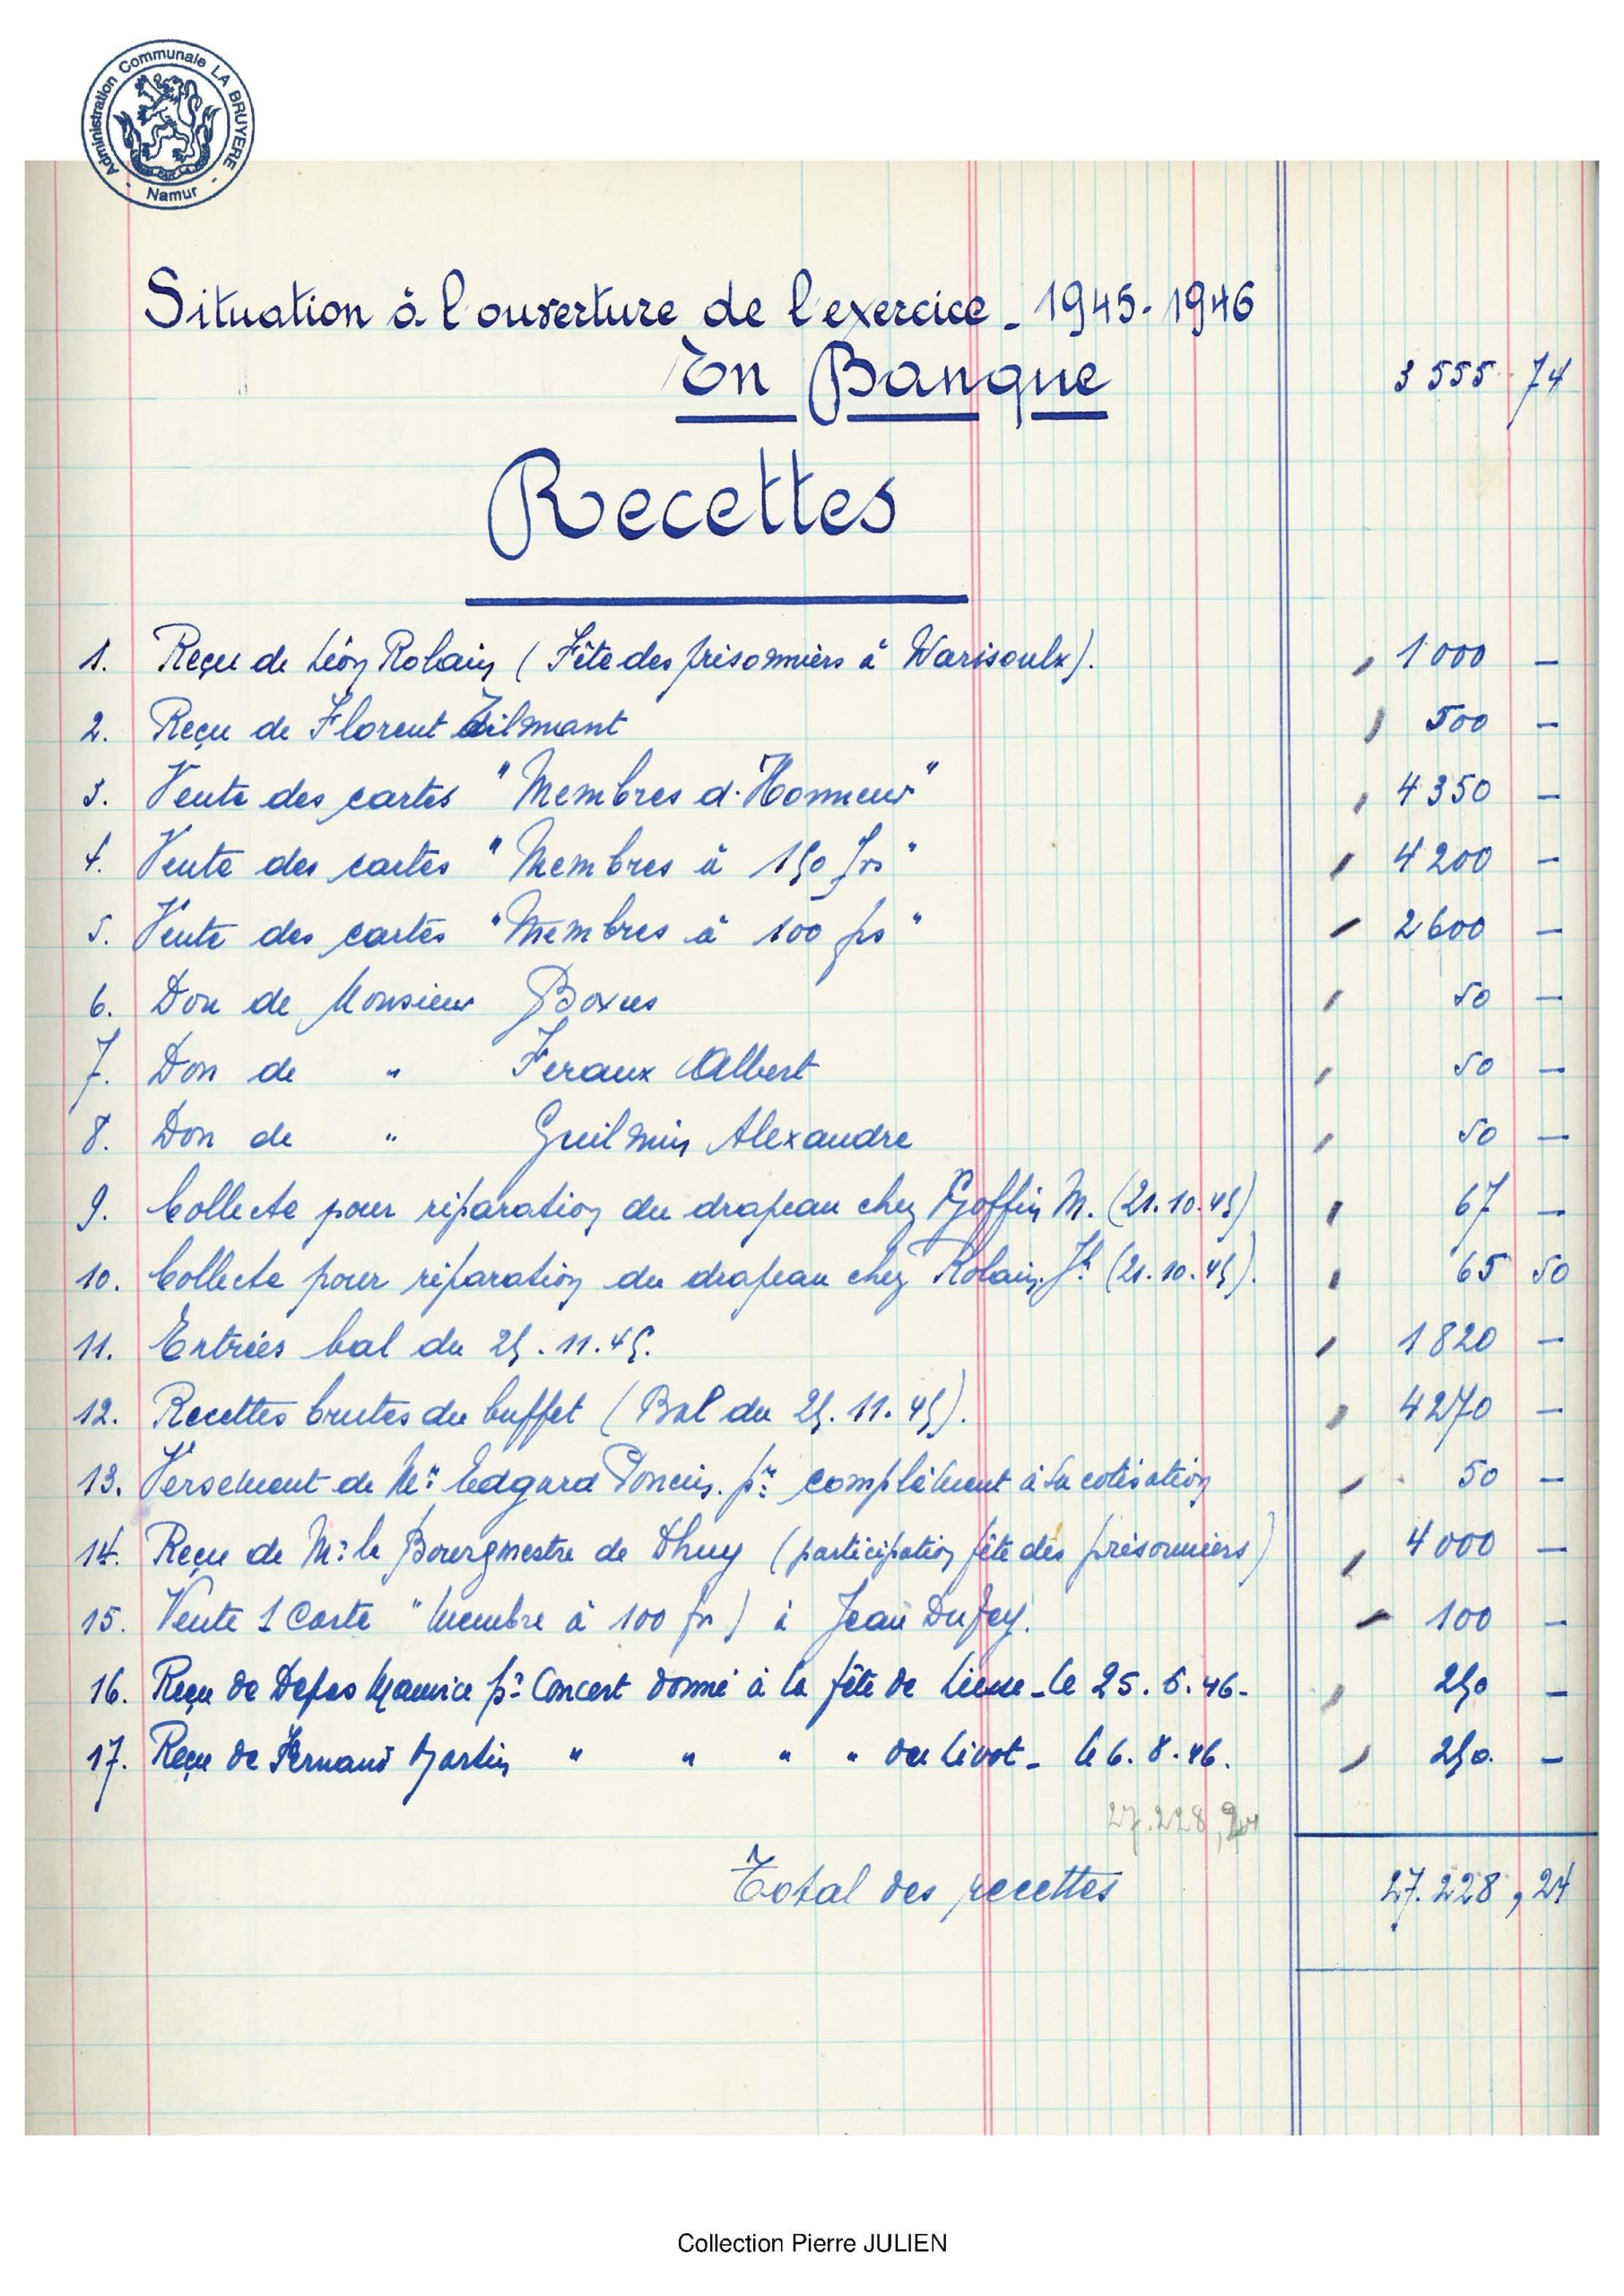 Administration Communale LA BRUYERE - Namur -
Situation à l'ouverture de l'exercice - 1945-1946
En Banque 3 555 74
Recettes
1. Reçu de Léon Rolain (Fête des prisonniers à Warisoulx). 1 000 —
2. Reçu de Florent Tilmant 500 —
3. Vente des cartes "Membres d'Honneur" 4 350 —
4. Vente des cartes "Membres à 150 frs" 4 200 —
5. Vente des cartes "Membres à 100 frs" 2 600 —
6. Don de Monsieur Boxus 50 —
7. Don de " Feraux Albert 50 —
8. Don de " Guilmin Alexandre 50 —
9. Collecte pour réparation du drapeau chez Goffin M. (21.10.45) 67 —
10. Collecte pour réparation du drapeau chez Rolain Jh (21.10.45). 65 50
11. Entrées bal du 25.11.45. 1 820 —
12. Recettes brutes du buffet (Bal du 25.11.45). 4 270 —
13. Versement de Mr Edgard Poncin. pr complément à sa cotisation 50 —
14. Reçu de Mr le Bourgmestre de Dhuy (participation fête des prisonniers) 4 000 —
15. Vente 1 Carte "Membre à 100 fr) à Jean Dufey. 100 —
16. Reçu de Maurice pr Concert donné à la fête de - le 25.6.46 - 250 —
17. Reçu de Fernand Martin " " " " du Livot - le 6.8.46. 250. —
27.228,24
Total des recettes 27.228,24
Collection Pierre JULIEN